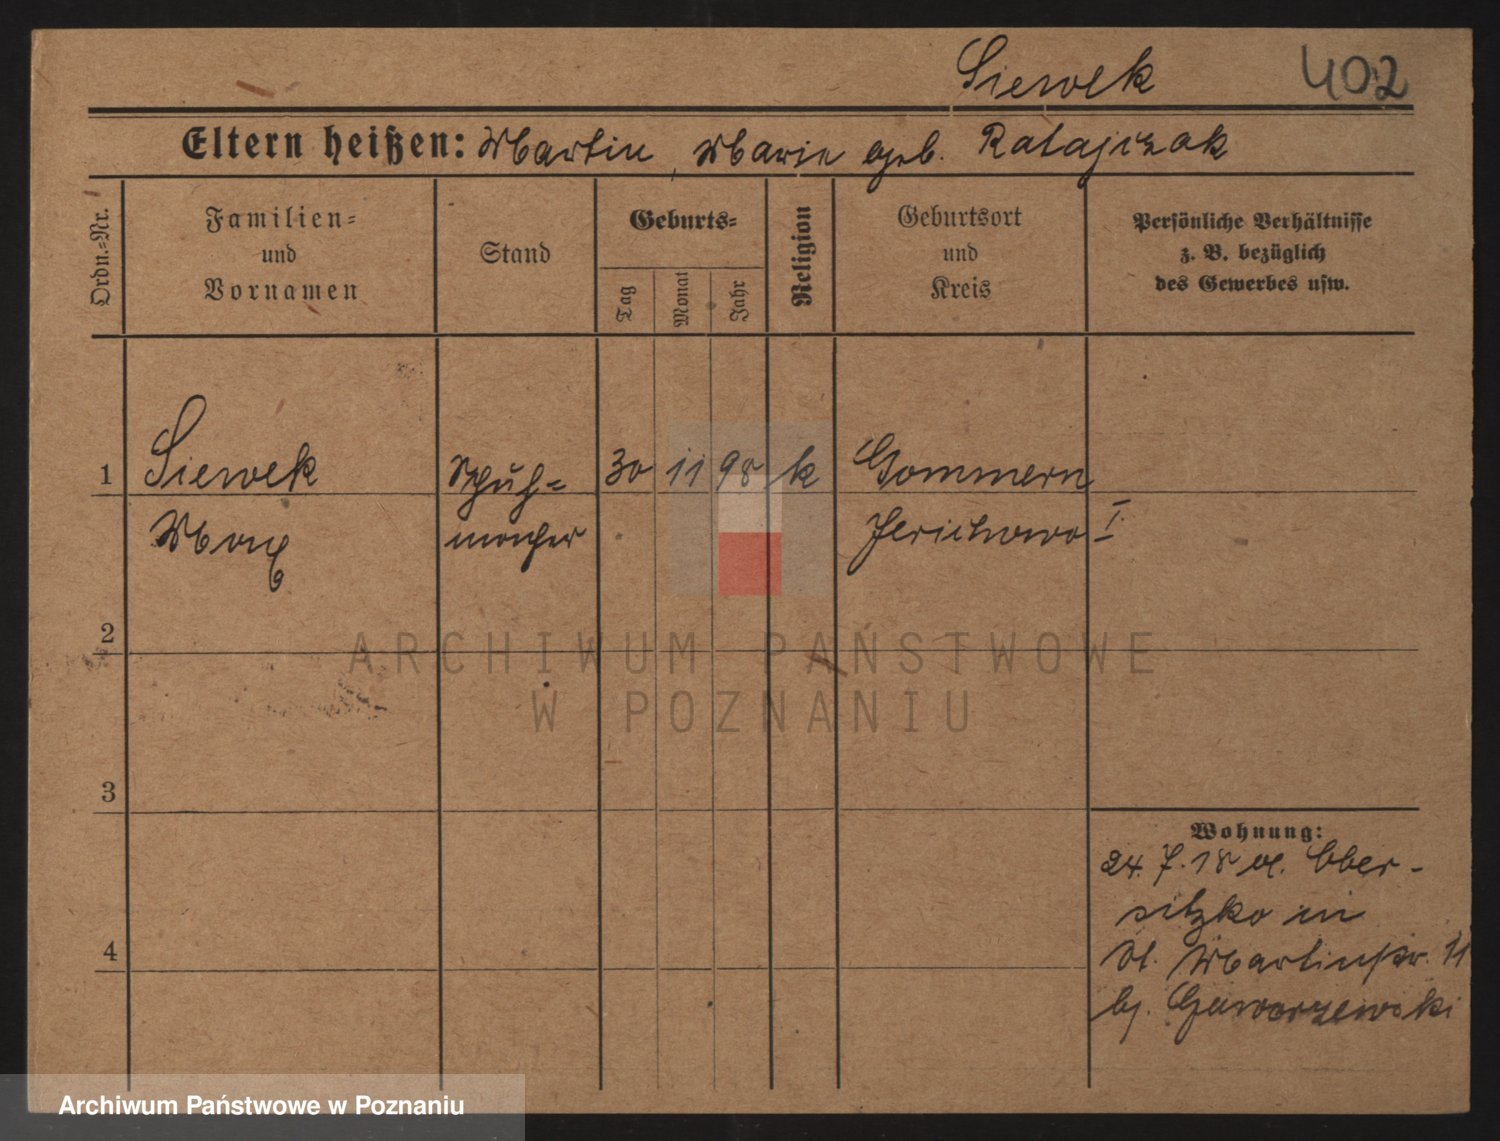 Siewek 402
Eltern heißen: Martin, Marie geb. Ratajczak
Ordn.=Nr.
Familien=
und
Vornamen
Stand
Geburts=
Tag
Monat
Jahr
Religion
Geburtsort
und
Kreis
Persönliche Verhältnisse
z. B. bezüglich
des Gewerbes usw.
1 Siewek Schuh= 30 11 98 k Gommern
Max macher Jerichowo I.
2
ARCHIWUM PAŃSTWOWE
W POZNANIU
3
Wohnung:
24. 7. 18 v. Ober-
sitzko in
St. Martinstr. 11
bj. Gaworzewski
4
Archiwum Państwowe w Poznaniu